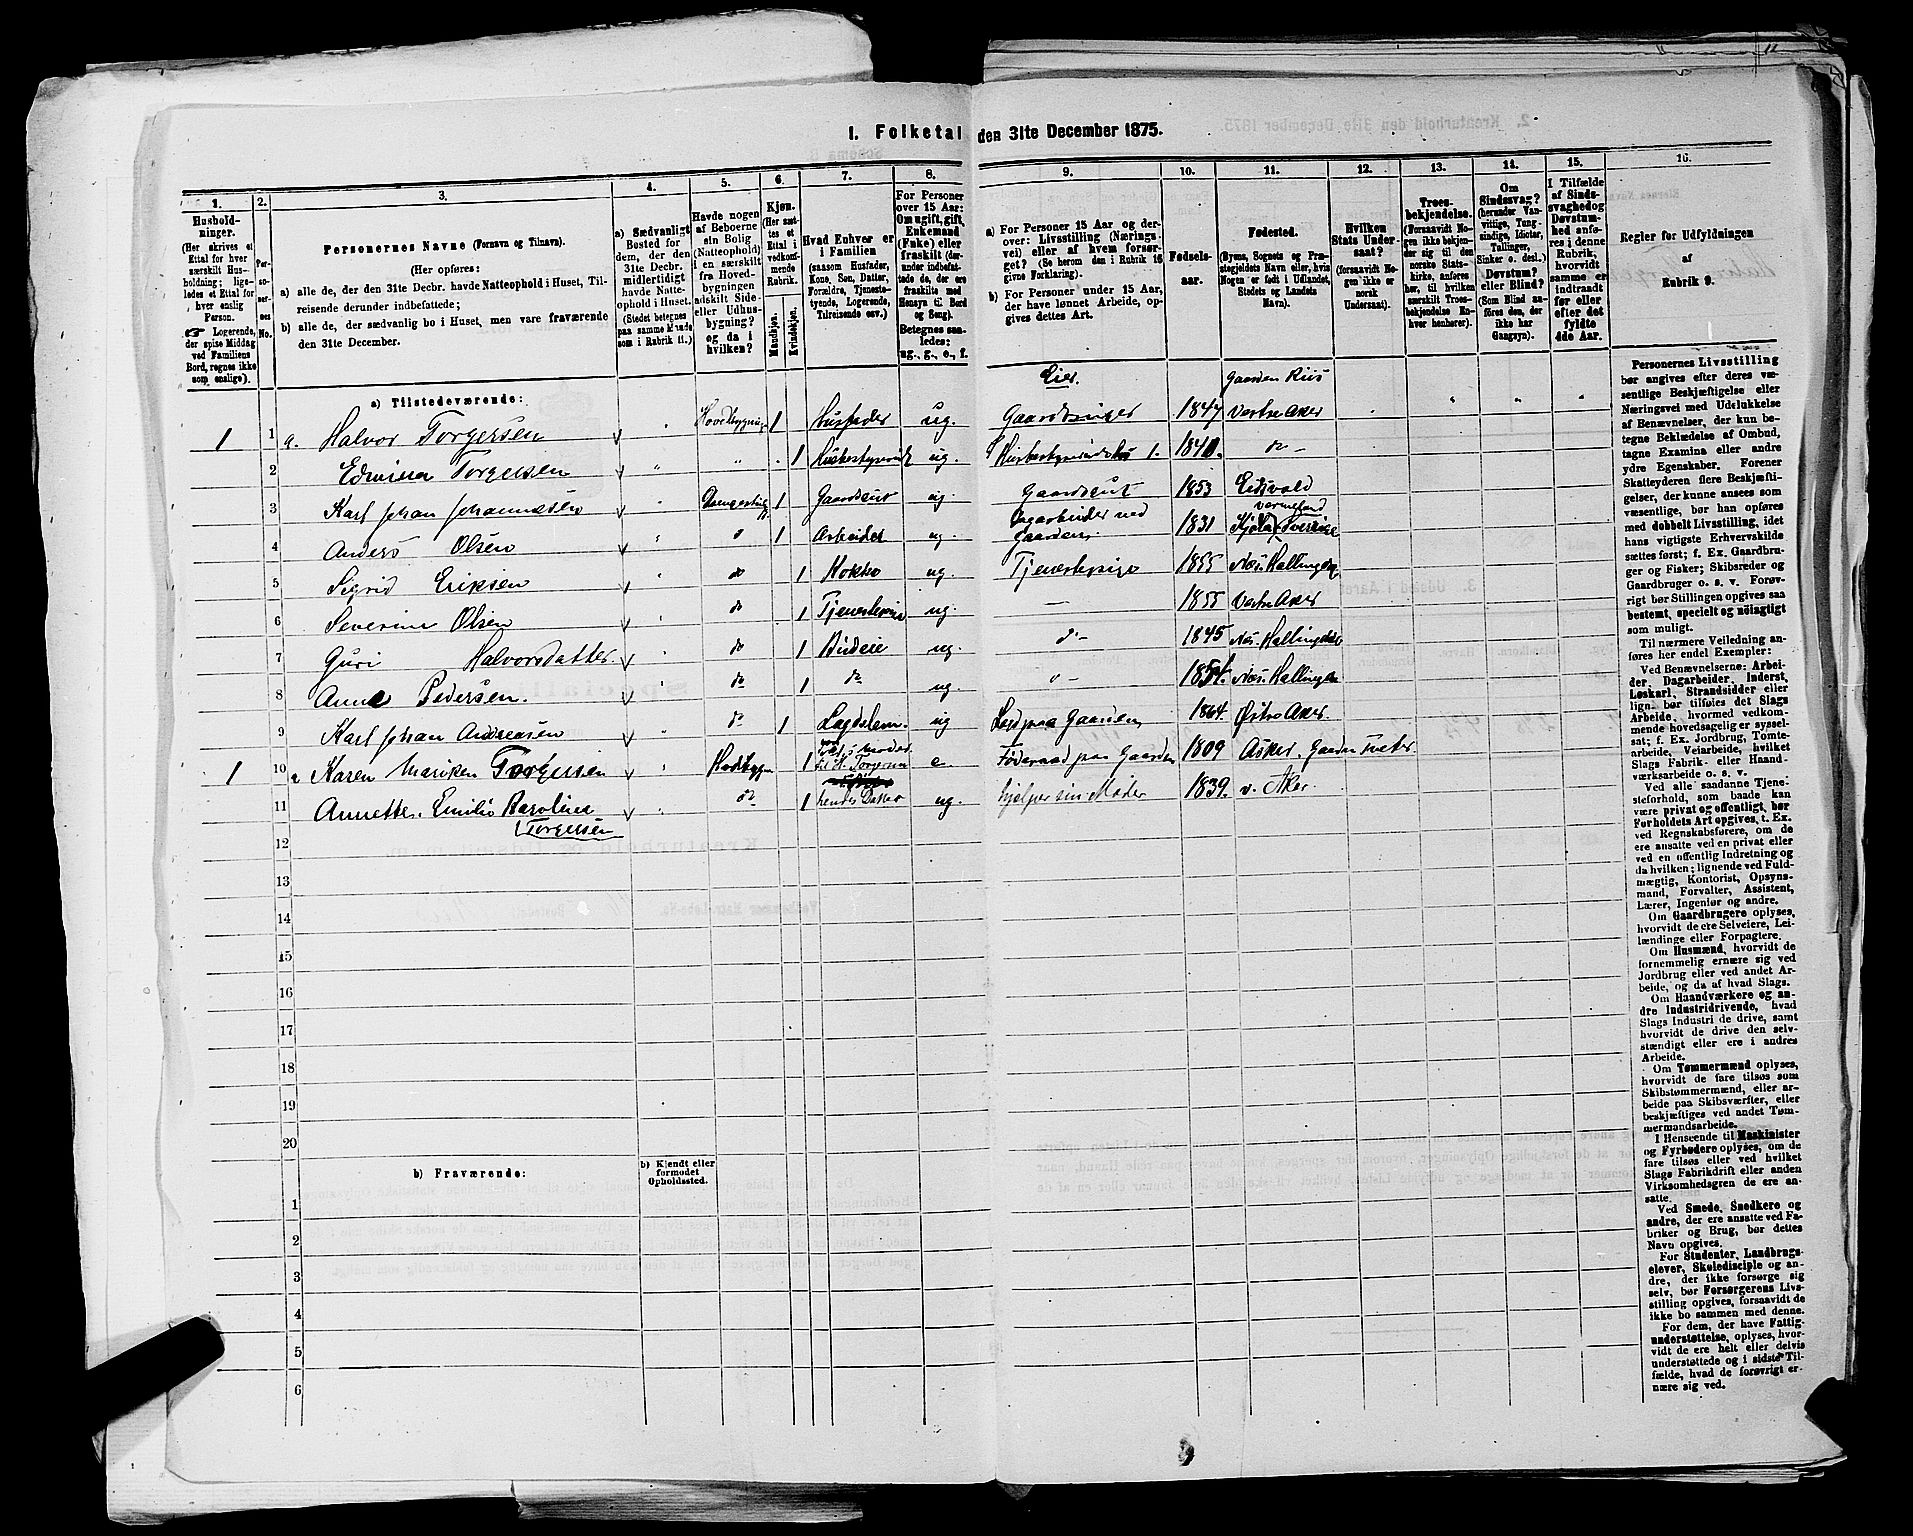 1. Folketal den 31te December 1875.
1.
2.
3.
4.
5.
6.
7.
8.
9.
10.
11.
12.
13.
14.
15.
16.
Hushold-
ninger.
(Her skrives et
Ettal for hver
særskilt Hus-
holdning; lige-
ledes et Ettal for
hver enslig
Person.
☞ Logerende,
der spise Middag
ved Familiens
Bord, regnes ikke
som enslige).
Per-
so-
ner-
nes
No.
Personernes Navne (Fornavn og Tilnavn).
(Her opføres:
a) alle de, der den 31te Decbr. havde Natteophold i Huset, Til-
reisende derunder indbefattede;
b) alle de, der sædvanlig bo i Huset, men vare fraværende
den 31te December.
a) Sædvanligt
Bosted for
dem, der den
31te Decbr.
midlertidigt
havde Natte-
ophold i Huset.
(Stedet betegnes
paa samme Maade
som i Rubrik 11.)
Havde nogen
af Beboerne
sin Bolig
(Natteophold)
i en særskilt
fra Hoved-
bygningen
adskilt Side-
eller Udhus-
bygning?
og da i
hvilken?
Kjøn.
(Her sæt-
tes et
Ettal i
vedkom-
mende
Rubrik.
Mandkjøn.
Kvindekjøn.
Hvad Enhver er
i Familien
(saasom Husfader,
Kone, Søn, Datter,
Forældre, Tjeneste-
tyende, Logerende,
Tilreisende osv.)
For Personer
over 15 Aar:
Om ugift, gift,
Enkemand
(Enke) eller
fraskilt (der-
under indbefat-
tede de, der ere
fraskilte med
Hensyn til Bord
og Seng).
Betegnes saa-
ledes:
ug., g., e., f.
a) For Personer 15 Aar og der-
over: Livsstilling (Nærings-
vei) eller af hvem forsør-
get? (Se herom den i Rubrik 16
givne Forklaring).
b) For Personer under 15 Aar,
der have lønnet Arbeide, op-
gives dettes Art.
Fødsels-
aar.
Fødested.
(Byens, Sognets og Præ-
stegjeldets Navn eller, hvis
Nogen er født i Udlandet,
Stedets og Landets
Navn).
Hvilken
Stats Under-
saat?
(forsaavidt No-
gen ikke er
norsk
Undersaat).
Troes-
bekjendelse.
(Forsaavidt No-
gen ikke bekjen-
der sig til den
norske Stats-
kirke, anføres
her, til hvilken
særskilt Troes-
bekjendelse En-
hver henhører).
Om
Sindssvag?
(herunder Van-
vittige, Tung-
sindige, Idioter,
Tullinger,
Sinker o. desl.)
Døvstum?
eller Blind?
(Som Blind an-
føres den, der
ikke har
Gangsyn).
I Tilfælde
af Sinds-
svaghed og
Døvstum-
hed anfø-
res i denne
Rubrik,
hvorvidt
samme er
indtraadt
før eller
efter det
fyldte
4de Aar.
Regler for Udfyldningen
af
Rubrik 9.
a) Tilstedeværende:
Eier. Gaarden Riis
1 1 a. Halvor Torgersen Hovedbygning 1 Husfader ug. Gaardbruger 1847 Vestre Aker
2 Edvina Torgersen " " 1 ug. do
3 Karl Johan Johannesen " 1 Gaardsgut ug. Gaardsgut 1853 Eidsvold
4 Anders Olsen " " 1 Arbeider ug. Dagarbeider ved Gaarden. 1831 Vermeland Sverige
5 Sigrid Eriksen " do 1 Kokke ug. Tjenestepige 1855 Næs. Hallingd.
6 Severine Olsen " do 1 ug. — 1855 Vestre Aker
7 Guri Halvorsdatter " do 1 Budeie ug. do 1845 Næs. Hallingdal
8 Anne Pedersen. " do 1 do ug. " 1854. Næs. Hallingd
9 Karl Johan Andresen " do 1 Lægdslem. ug 1864. Østre Aker.
1 10 Karen Mariken Torgersen " Hovedbygn 1 Moder til H. Torgersen e. Føderaad paa Gaarden 1809 Asker. Gaarden Tveter
11 Annette. Emilie Karoline Torgersen " do 1 hendes Datter ug. hjelper sin Moder 1839. v. Aker.
12
13
14
15
16
17
18
19
20
b) Fraværende:
b) Kjendt eller
formodet
Opholdssted.
1
2
3
4
5
6
Personernes Livsstilling
bør angives efter deres væ-
sentlige Beskjæftigelse eller
Næringsvei med Udelukkelse
af Benævnelser, der kun be-
tegne Beklædelse af Ombud,
tagne Examina eller andre
ydre Egenskaber. Forener
Skatteyderen flere Beskjæfti-
gelser, der kunne ansees som
væsentlige, bør han opføres
med dobbelt Livsstilling, idet
hans vigtigste Erhvervskilde
sættes først; f. Ex. Gaardbru-
ger og Fisker; Skibsreder og
Gaardbruger o. s. v. Forøv-
rigt bør Stillingen opgives saa
bestemt, specielt og nöiagtigt
som muligt.
Til nærmere Veiledning an-
føres her endel Exempler:
Ved Benævnelserne: Arbei-
der, Dagarbeider, Inderst,
Løskarl, Strandsidder eller
lign. bør tilføies det Slags
Arbeide, hvormed vedkom-
mende hovedsagelig er syssel-
sat; f. Ex. Jordbrug, Tomte-
arbeide, Veiarbeide, hvilket
Slags Fabrik- eller Haand-
værksarbeide o. s. v.
Ved alle saadanne Tjene-
steforhold, som baade kan
være privat og offentligt, bør
Forholdets Art opgives, t. Ex.
ved Regnskabsførere, om de
ere ansatte ved en privat eller
ved en offentlig Indretning og
da hvilken; lignende ved Fuld-
mægtig, Kontorist, Opsyns-
mand, Forvalter, Assistent,
Lærer, Ingeniør og andre.
Om Gaardbrugere oplyses,
hvorvidt de ere Selveiere, Lei-
lændinge eller Forpagtere.
Om Husmænd, hvorvidt de
fornemmelig ernære sig ved
Jordbrug eller ved andet Ar-
beide, og da af hvad Slags.
Om Haandværkere og an-
dre Industridrivende, hvad
Slags Industri de drive, samt
hvorvidt de drive den selv-
stændigt eller ere i andres
Arbeide.
Om Tømmermænd oplyses,
hvorvidt de fare tilsøs som
Skibstømmermænd, eller ar-
beide paa Skibsværfter, eller
beskjæftiges ved andet Tøm-
mermandsarbeide.
I Henseende til Maskinister
og Fyrbødere oplyses, om de
fare tilsøs eller ved hvilket
Slags Fabrikdrift eller anden
Virksomhedsgren de ere an-
satte.
Ved Smede, Snedkere og
andre, der ere ansatte ved Fa-
briker og Brug, bør dettes
Navn opgives.
For Studenter, Landbrugs-
elever, Skoledisciple og an-
dre, der ikke forsørge sig
selv, bør Forsørgerens Livs-
stilling opgives, forsaavidt de
ikke bo sammen med denne.
For dem, der have Fattig-
understøttelse, oplyses, hvor-
vidt de ere helt eller delvis
understøttede og i sidste Til-
fælde, hvad de forøvrigt er-
nære sig ved.